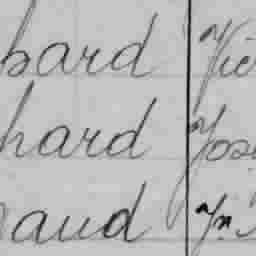 bard Vic
hard Jos
aud Jn.